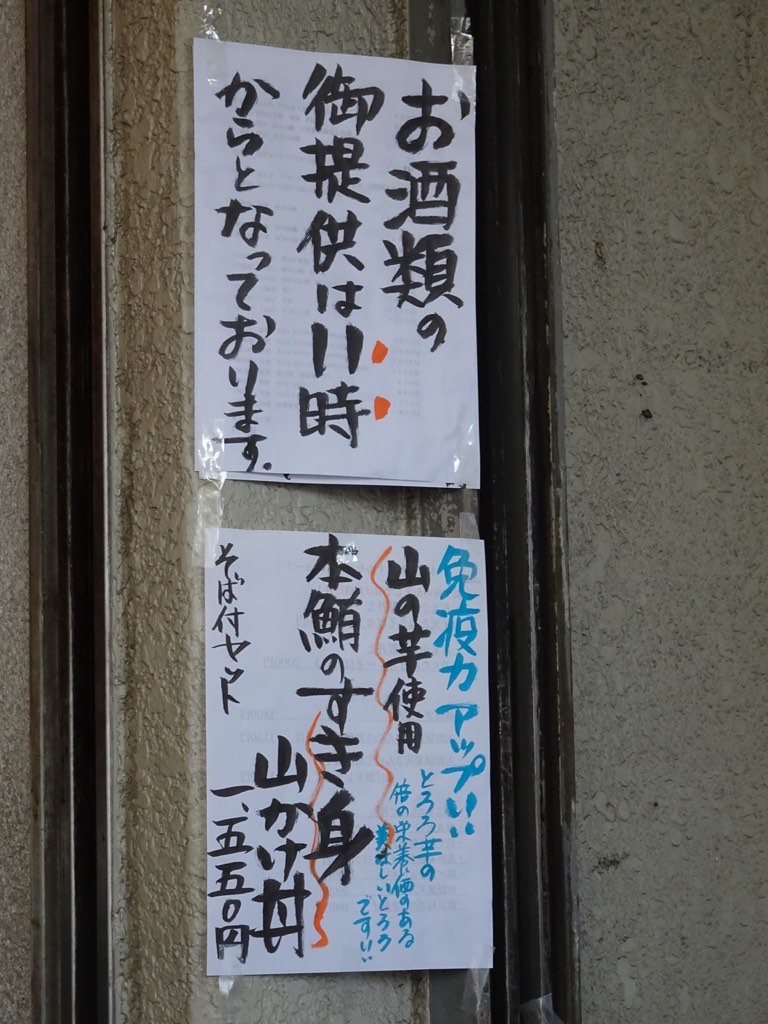 お酒類の
御提供は11時
からとなっております.
免疫力アップ!!
山の芋使用
とろろ芋の
倍の栄養価のある
美味しいとろろ
です!!
本鮪のすき身
山かけ丼
そば付セット
一、五五〇円